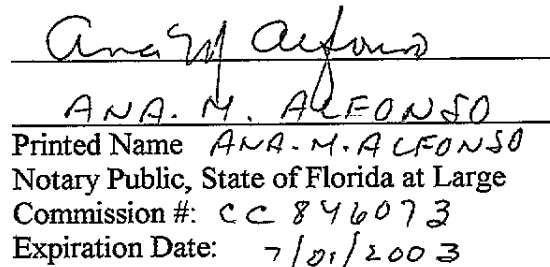 Ana M Alfonso
ANA. M. ALFONSO
Printed Name ANA. M. ALFONSO
Notary Public, State of Florida at Large
Commission #: CC 846073
Expiration Date: 7/01/2003